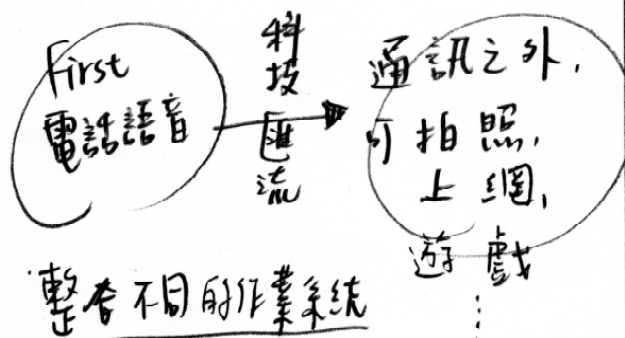 First
電話語音
科技匯流
通訊之外,
可拍照,
上網,
遊戲
⋮
整套不同的作業系統